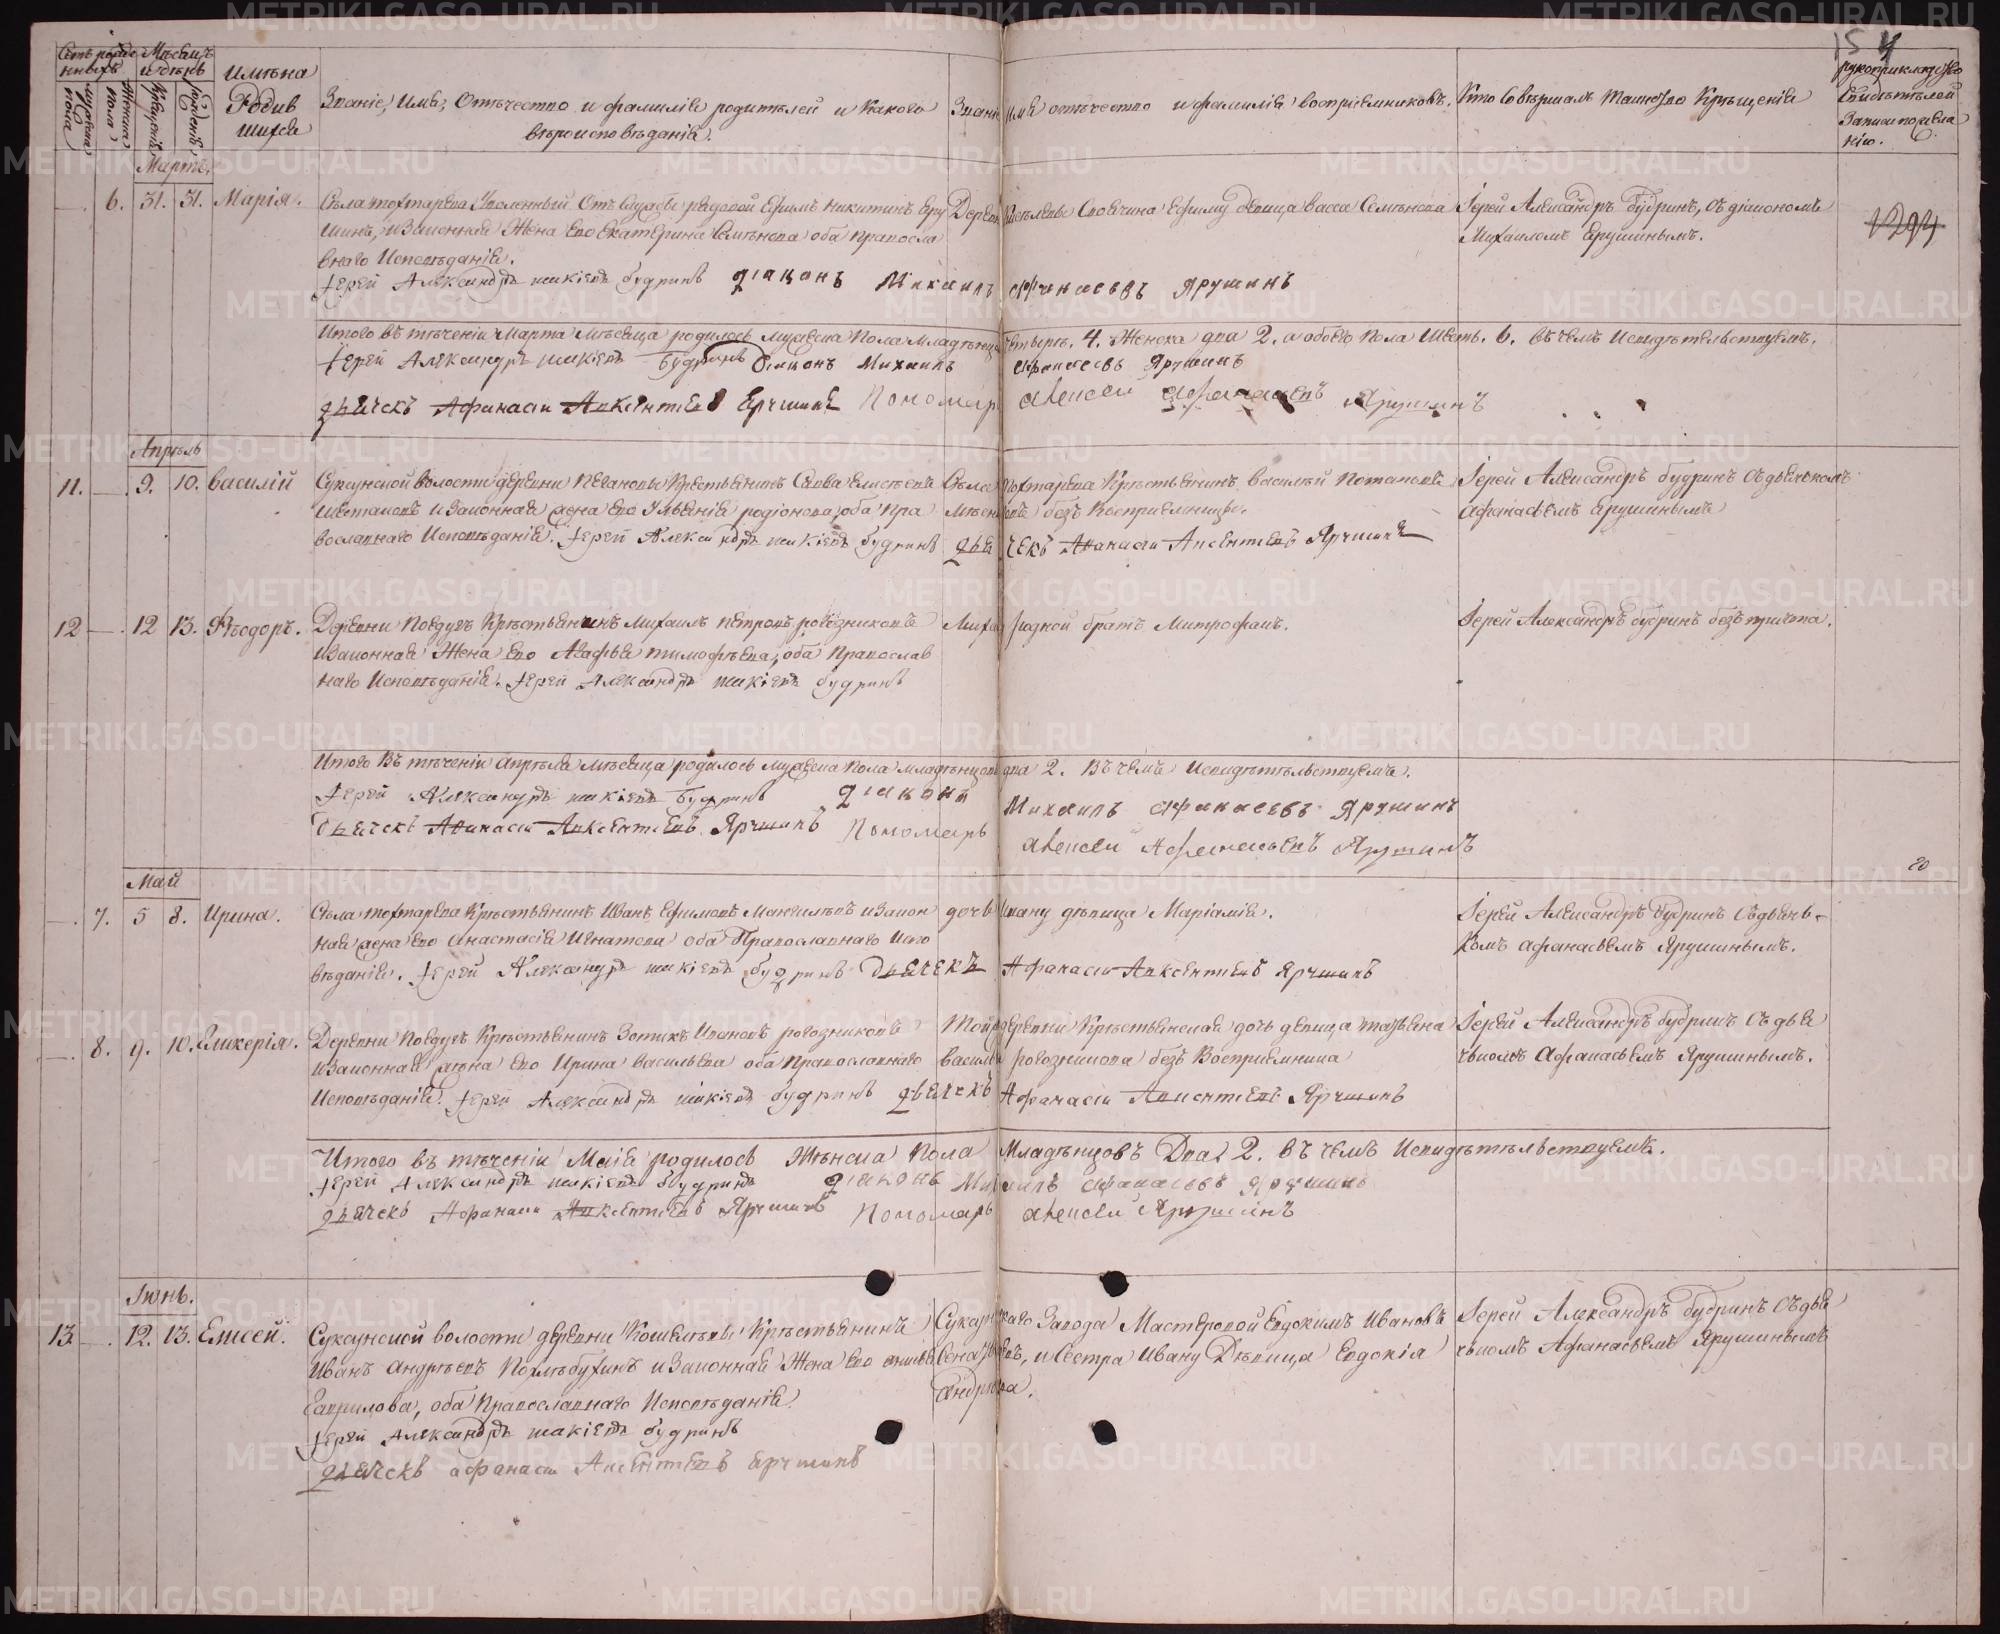 154
Счетъ рожденныхъ
Мѣсяцъ и день
Имѣна Родившихся
Званіе, Имя, Отѣчество и фамилія родитѣлей и Какого вѣроисповѣданія.
Званіе Имя отѣчество и фамилія воспріемниковъ.
Кто Совѣршалъ Таинство Крѣщенія
рукоприкладство Свидѣтѣлей Записи по жѣланію.
мужеска пола
Женска пола
рожденія
Крещенія
Мартъ.
6. 31. 31. Марія.
Села тохтарева Уволенный Отъ Службы рядовой Ефимъ Никитинъ Еру
шинъ, и Законная Жена Его Екатерина Семѣнова оба Правосла
внаго Исповѣданія.
Деревни Сноячина Ефиму дѣвица Васса Семѣнова
Іерей Александръ будринъ, съ діакономъ
Михаиломъ Ерушинымъ.
Іерей Александръ будринъ діаконъ Михаилъ Афанасьевъ Ярушинъ
Итого въ тѣченіи Марта Мѣсяца родилось мужеска Пола Младѣнцовъ четыре. 4. Женска два 2, а обоего пола Шесть. 6. въ чемъ И свидѣтельствуемъ.
Іерей Александръ Будринъ Діаконъ Михаилъ Афанасьевъ Ярушинъ
дьячекъ Афанасій Авксентіевъ Ярушинъ Пономарь Алексѣй Афанасьевъ Ярушинъ
Апрѣль
11. 9. 10. Василій
Суксунской Волости дѣревни Пѣгановы Крестьянинъ Савва Елисѣевъ
Шестаковъ и Законная жена его Ульянія родіонова, оба Пра
вославнаго Исповѣданія. Іерей Александръ будринъ дьячекъ Афанасій Авксентіевъ Ярушинъ
Села Тохтарева Крѣстьянинъ Василѣй Потаповъ
безъ Воспріемницы.
Іерей Александръ будринъ Съ дьячькомъ
Афанасьемъ Ерушинымъ
12 12 13. Ѳѣодоръ.
Дѣревни Поѣдугъ Крѣстьянинъ Михаилъ Пѣтровъ рогозниковъ
и Законная Жена Его Агафья тимофѣева, оба Православ
наго Исповѣданія. Іерей Александръ будринъ
Михаилу родной братъ Митрофанъ.
Іерей Александръ будринъ безъ причта.
Итого Въ тѣченіи Апрѣля мѣсяца родилось мужеска пола младѣнцовъ два 2. Въ чемъ И свидѣтѣльствуемъ.
Іерей Александръ Будринъ діаконъ Михаилъ Афанасьевъ Ярушинъ
дьячекъ Афанасій Авксентіевъ Ярушинъ Пономарь Алексѣй Афанасьевъ Ярушинъ
Май
7. 5 8. Ирина.
Села тохтарева Крѣстьянинъ Иванъ Ефимовъ и Закон
ная жена его Анастасія Игнатова оба Православнаго Испо
вѣданія. Іерей Александръ будринъ Дьячекъ Афанасій Авксентіевъ Ярушинъ
дочь Ивану дѣвица Маріамія.
Іерей Александръ будринъ Съ дьячь-
комъ Афанасьемъ Ярушинымъ.
8. 9. 10. Гликерія.
Дѣревни Поѣдугъ Крѣстьянинъ Зотикъ Ивановъ рогозниковъ
и Законная жена его Ирина Васильева оба Православнаго
Исповѣданія. Іерей Александръ будринъ дьячекъ Афанасій Авксентіевъ Ярушинъ
Той деревни Крѣстьянская дочь дѣвица татьяна
Васильева рогозникова безъ Воспріемника
Іерей Александръ будринъ Съ дья
чькомъ Афанасьемъ Ярушинымъ.
Итого въ тѣченіи Маія родилось Жѣнска Пола Младѣнцовъ Два 2. въ чемъ И свидѣтѣльствуемъ.
Іерей Александръ будринъ діаконъ Михаилъ Афанасьевъ Ярушинъ
дьячекъ Афанасій Авксентіевъ Ярушинъ Пономарь Алексѣй Ярушинъ
Іюнь.
13 12. 13. Елисей.
Суксунской волости дѣревни Кошелевы Крѣстьянинъ
Иванъ Андрѣевъ и Законная Жена Его
Гаврилова, оба Православнаго Исповѣданія
Іерей Александръ будринъ
дьячекъ Афанасій Авксентіевъ Ярушинъ
Суксунскаго Завода Мастеровой Евдокимъ Ивановъ
и Сестра Ивану Дѣвица Евдокія
Андрѣева.
Іерей Александръ будринъ Съ дья
чькомъ Афанасьемъ Ярушинымъ
METRIKI.GASO-URAL.RU